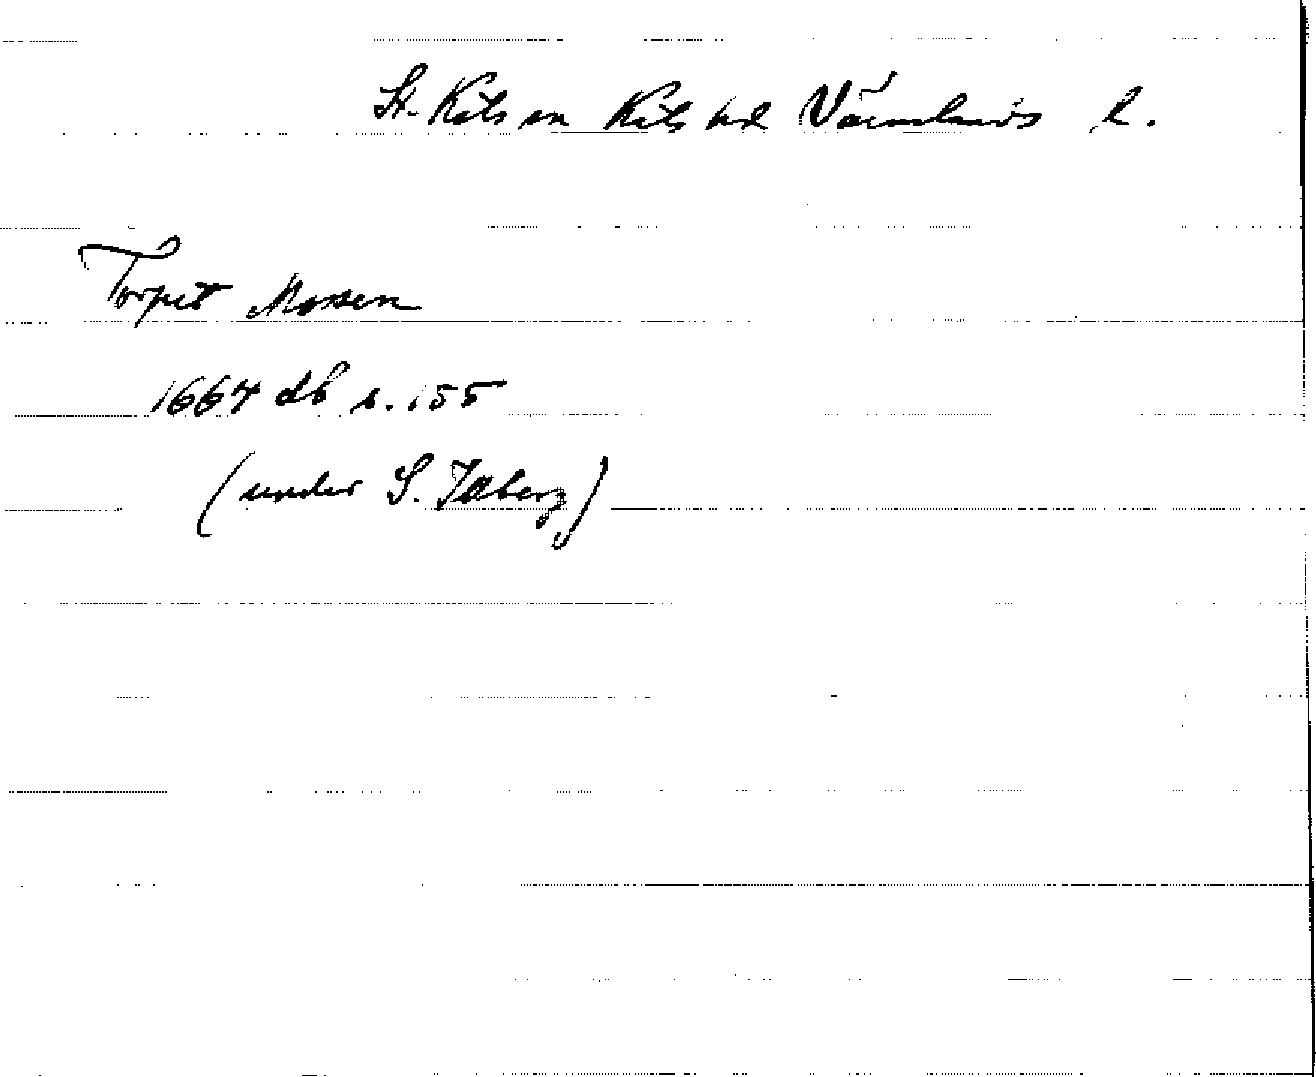 St. Kils sn Kils hd Värmlands l.
Torpet Mossen
1664 db s. 155
(under S. Illberg)